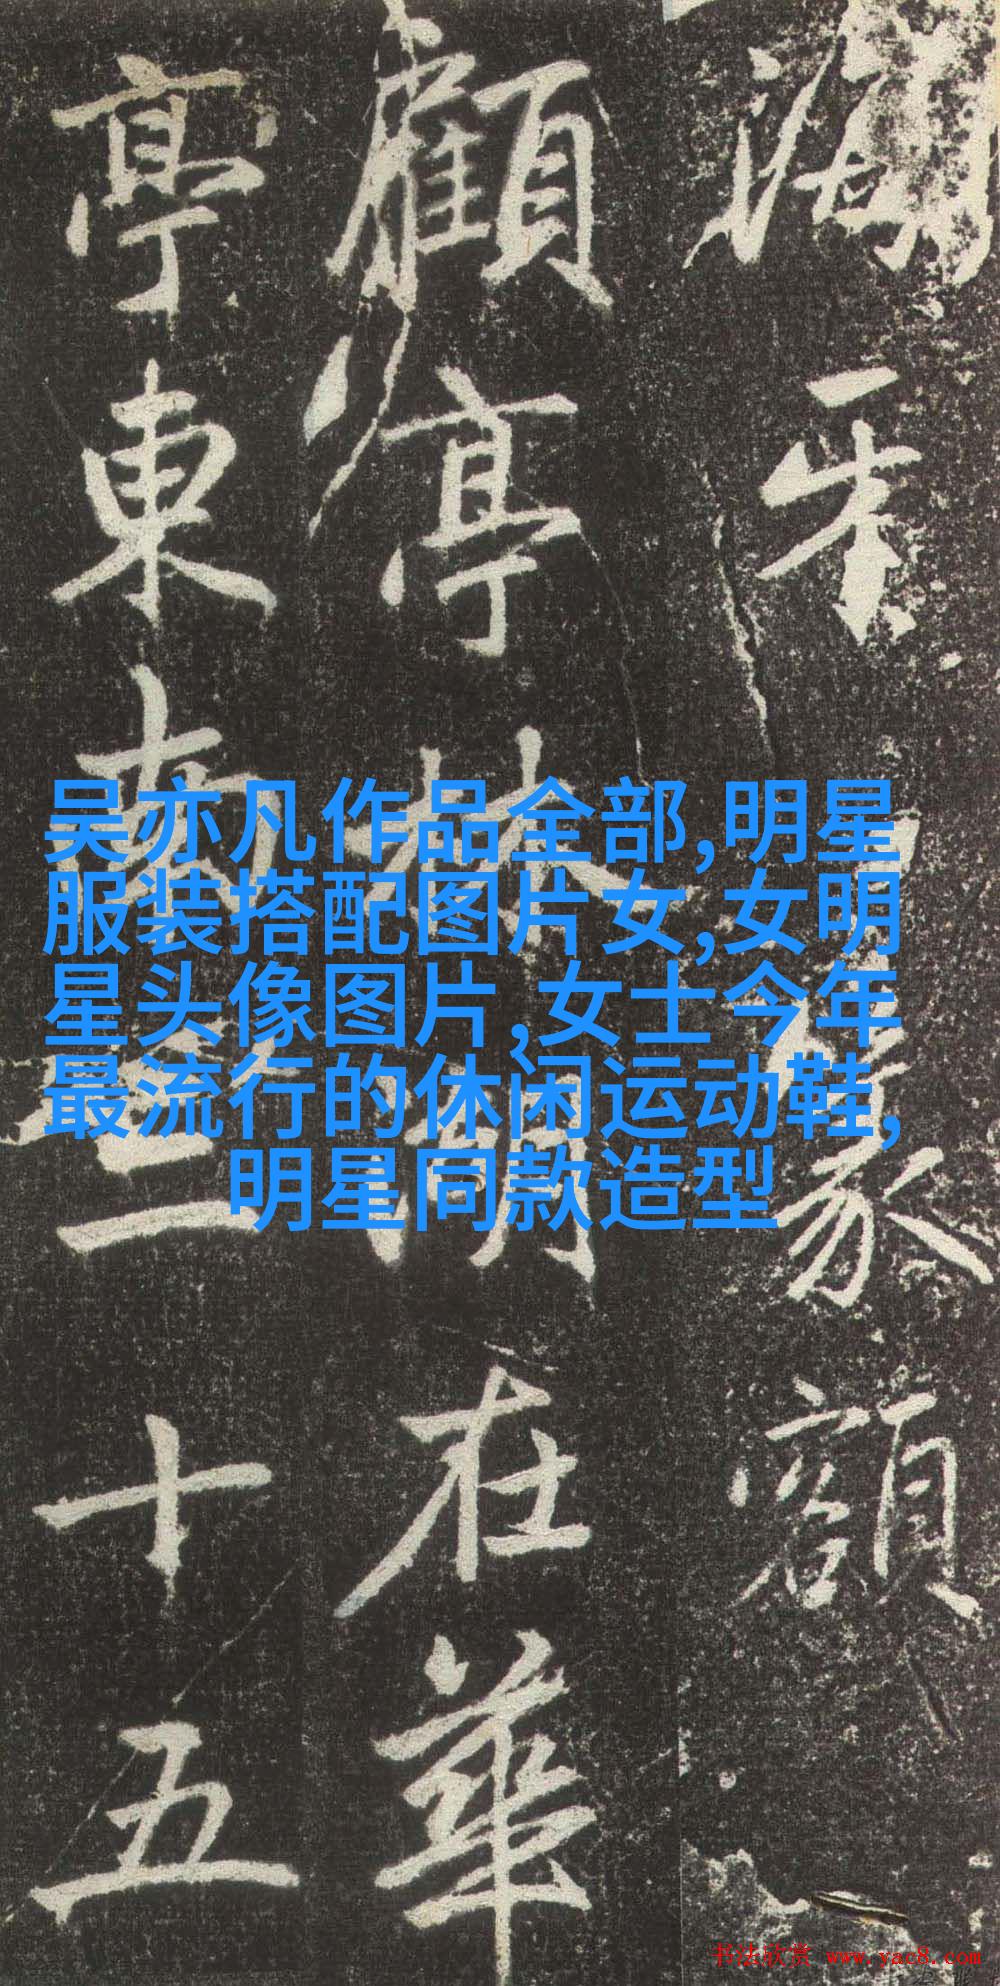 篆額
顧亭林湖在華
亭東南三十五
吴亦凡作品全部,明星
服装搭配图片女,女明
星头像图片,女士今年
最流行的休闲运动鞋,
明星同款造型
书法欣赏 www.yac8.com